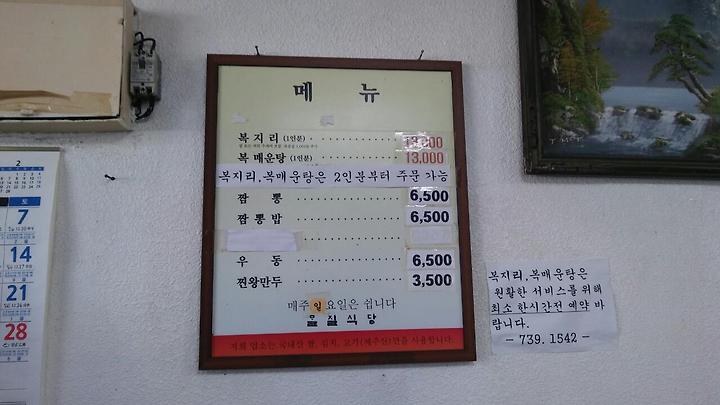 메 뉴
복지리 (1인분) 13,000
복 매운탕 (1인분) 13,000
복지리,복매운탕은 2인분부터 주문 가능
짬 뽕 6,500
짬 뽕 밥 6,500
우 동 6,500
찐왕만두 3,500
매주 일 요일은 쉽니다
저희 업소는 국내산 쌀, 김치, 고기(제주산)만을 사용합니다.
복지리,복매운탕은
원활한 서비스를 위해
최소 한시간전 예약 바
랍니다.
- 739.1542 -
2
토
7
14
21
28